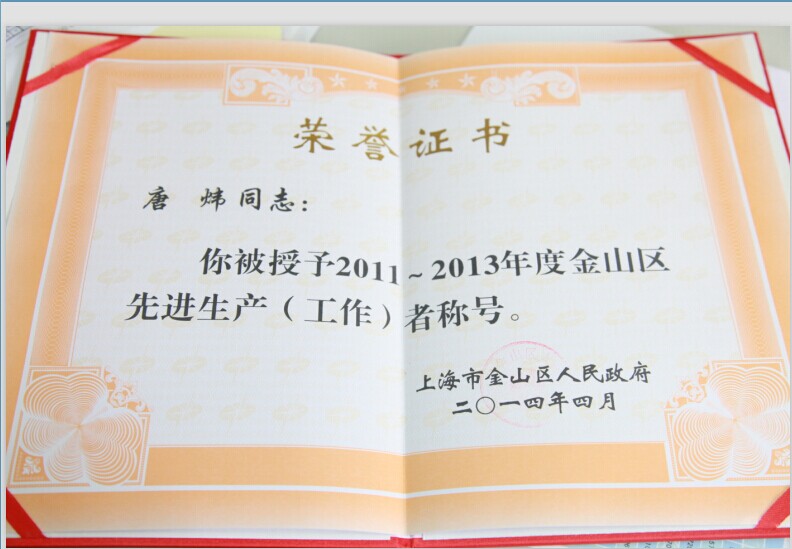 荣誉证书
唐 炜同志：
你被授予2011～2013年度金山区
先进生产（工作）者称号。
上海市金山区人民政府
二〇一四年四月